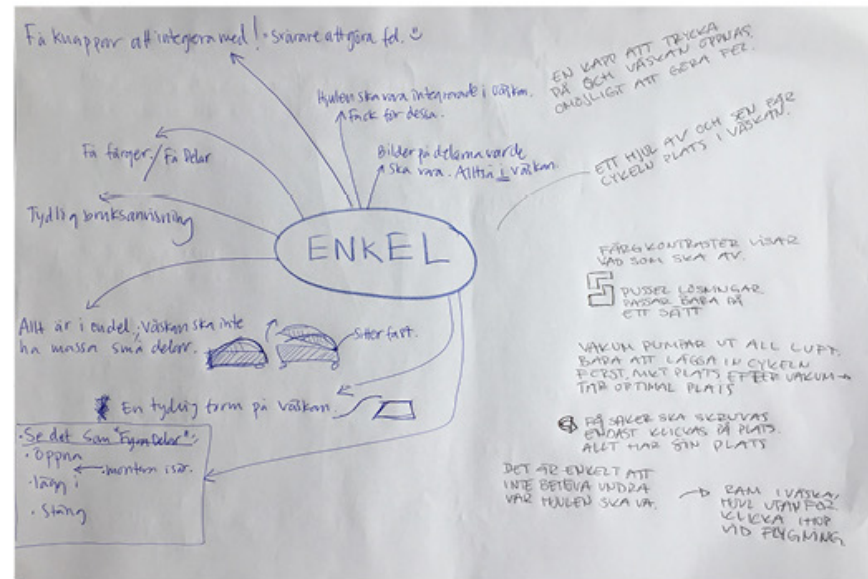 Få knappar att integera med! · svårare att göra fel.
Hjulen ska vara integrerade i väskan.
Fack för dessa.
Få färger / Få Delar
Bilder på delarna var de
ska vara. Alltså i väskan.
Tydlig bruksanvisning
ENKEL
Allt är i en del; väskan ska inte
ha massa små delar.
Sitter fast.
En tydlig form på väskan
· Se det som "Fyra Delar":
· Öppna
montera isär.
· lägg i
· Stäng
EN KAPP ATT TRYCKA
PÅ OCH VÄSKAN ÖPPNAS.
OMÖJLIGT ATT GÖRA FEL.
ETT HJUL AV OCH SEN FÅR
CYKELN PLATS I VÄSKAN.
FÄRGKONTRASTER VISAR
VAD SOM SKA AV.
PUSSEL LÖSNINGAR
PASSAR BARA PÅ
ETT SÄTT
VAKUM PUMPAR UT ALL LUFT.
BARA ATT LÄGGA IN CYKELN
FÖRST. MKT PLATS EFTER VAKUM
TAR OPTIMAL PLATS
FÅ SAKER SKA SKRUVAS
ENDAST KLICKAS PÅ PLATS.
ALLT HAR SIN PLATS
DET ÄR ENKELT ATT
INTE BEHÖVA UNDRA
VAR HJULEN SKA VA.
RAM I VÄSKA,
HJUL UTANFÖR.
KLICKA IHOP
VID FLYGNING